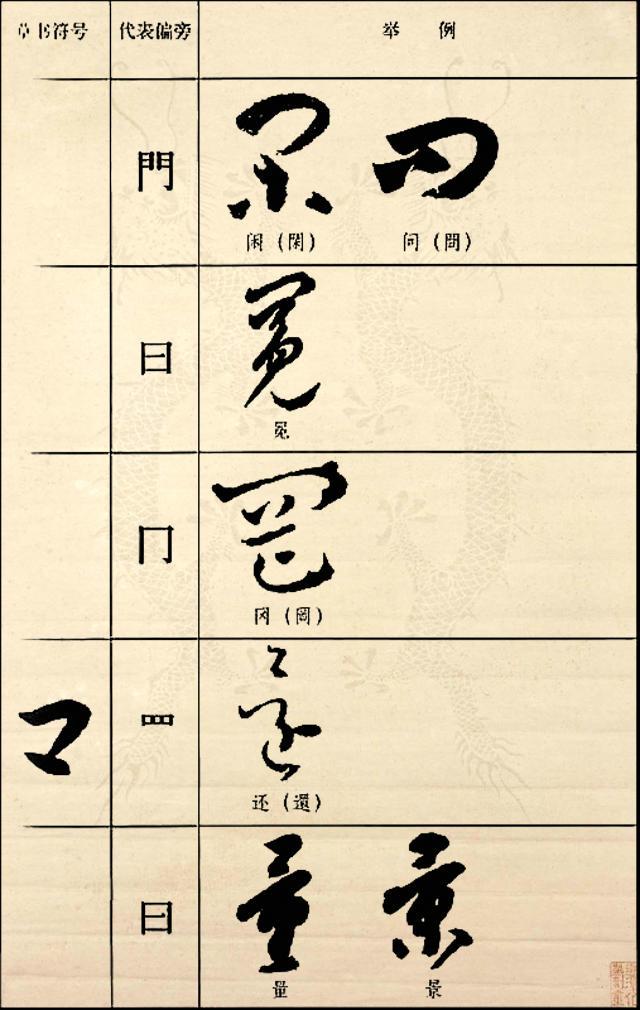 草书符号 代表偏旁 举例
門
闲（閑） 问（問）
曰
冕
冂
冈（岡）
罒
还（還）
曰
量 景